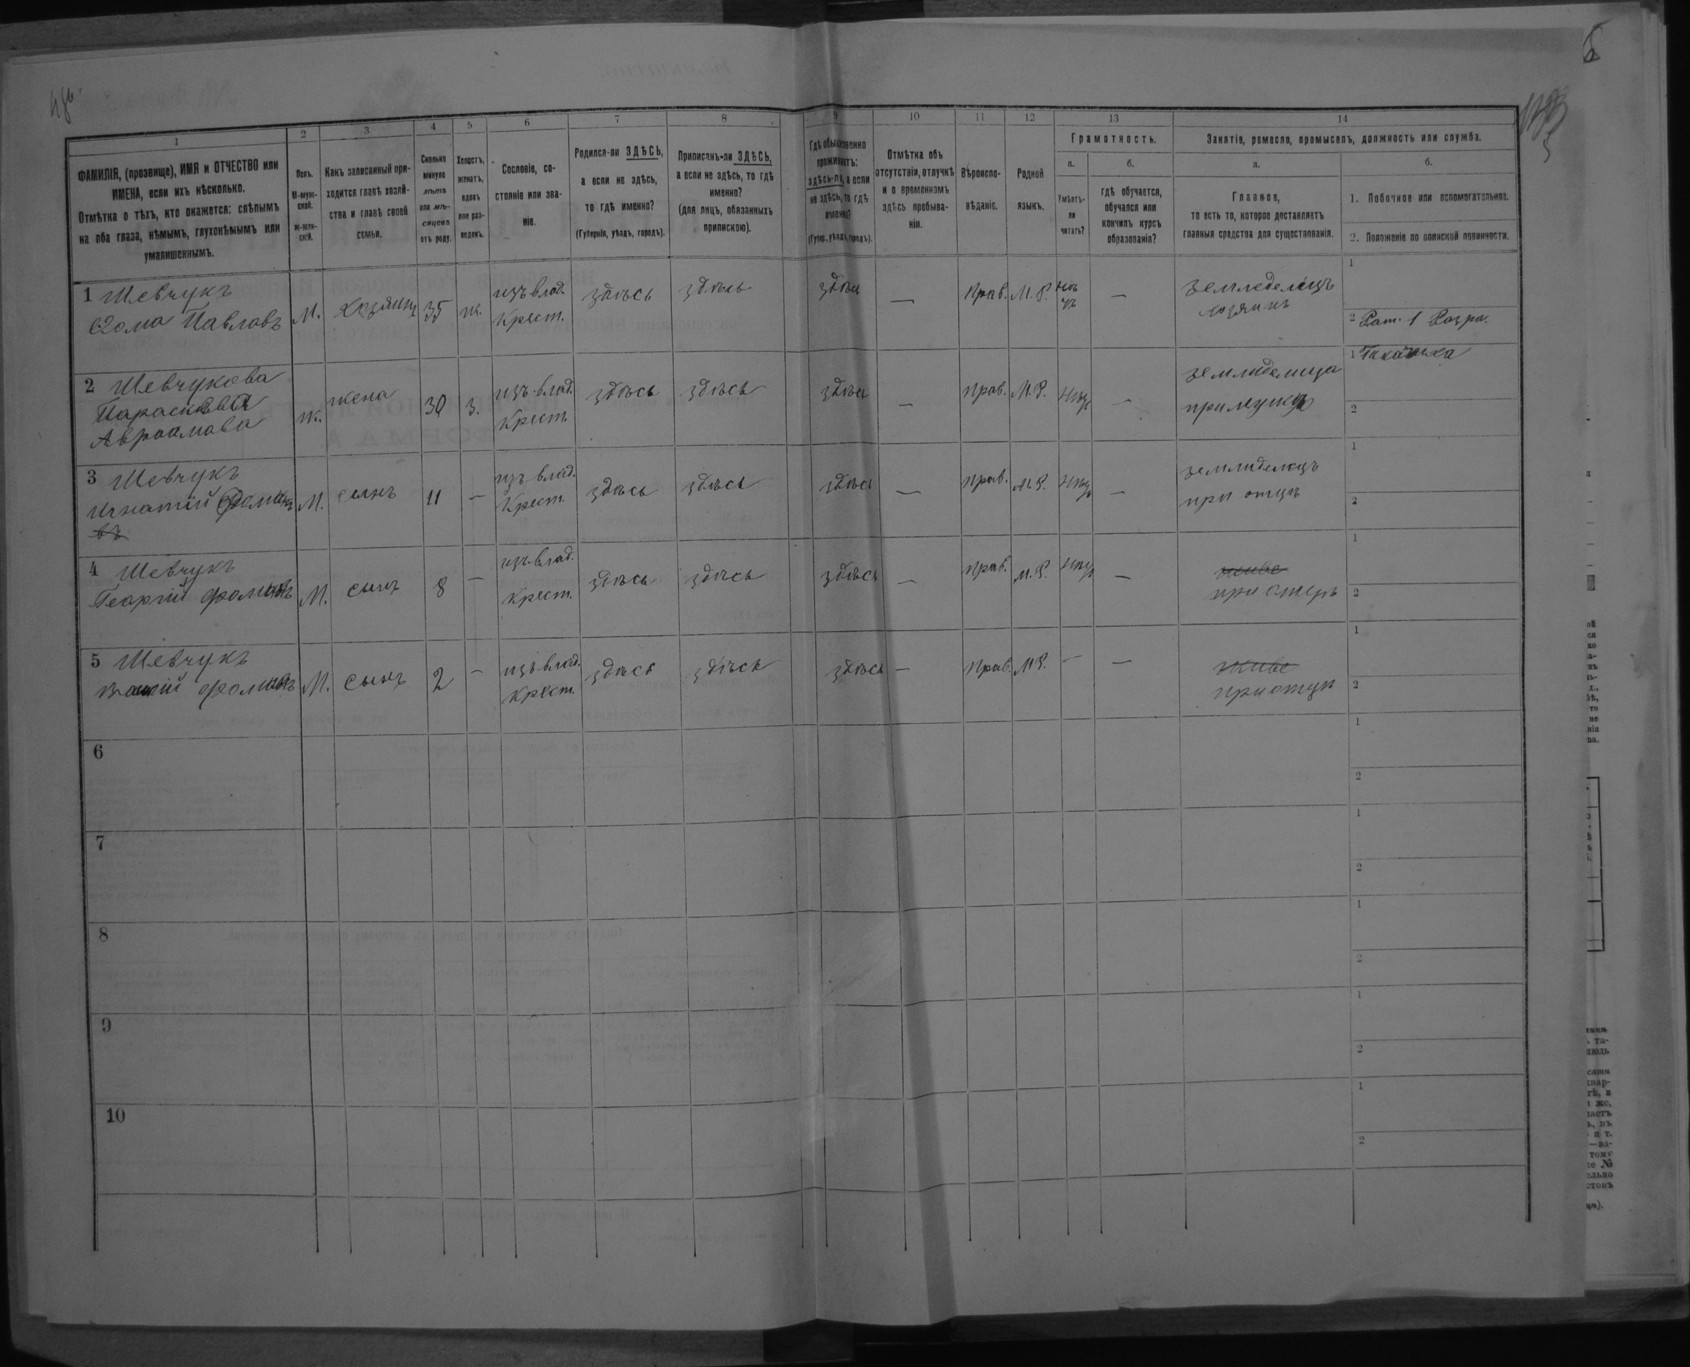 1 2 3 4 5 6 7 8 9 10 11 12 13 14
ФАМИЛІЯ, (прозвище), ИМЯ и ОТЧЕСТВО или
ИМЕНА, если ихъ нѣсколько.
Отмѣтка о тѣхъ, кто окажется: слѣпымъ
на оба глаза, нѣмымъ, глухонѣмымъ или
умалишеннымъ.
Полъ.
М-муж-
ской.
Ж-жен-
скій.
Какъ записанный при-
ходится главѣ хозяй-
ства и главѣ своей
семьи.
Сколько
минуло
лѣтъ
или мѣ-
сяцевъ
отъ роду.
Холостъ,
женатъ,
вдовъ
или раз-
веденъ.
Сословіе, со-
стояніе или зва-
ніе.
Родился-ли ЗДѢСЬ,
а если не здѣсь,
то гдѣ именно?
(Губернія, уѣздъ, городъ).
Приписанъ-ли ЗДѢСЬ,
а если не здѣсь, то гдѣ
именно?
(для лицъ, обязанныхъ
припискою).
Гдѣ обыкновенно
проживаетъ:
здѣсь-ли, а если
не здѣсь, то гдѣ
именно?
(Губер., уѣздъ, городъ).
Отмѣтка объ
отсутствіи, отлучкѣ
и о временномъ
здѣсь пребыва-
ніи.
Вѣроиспо-
вѣданіе.
Родной
языкъ.
Грамотность.
а.
Умѣетъ-
ли
читать?
б.
гдѣ обучается,
обучался или
кончилъ курсъ
образованія?
Занятія, ремесло, промыселъ, должность или служба.
а.
Главное,
то есть то, которое доставляетъ
главныя средства для существованія.
б.
1. Побочное или вспомогательное.
2. Положеніе по воинской повинности.
1 Шевчукъ
Ѳома Павловъ
М. хозяинъ 35 ж. изъ влад.
Крест. здѣсь здѣсь здѣсь — Прав. М.Р. — земледѣлецъ
хозяинъ
1
2 Рат. 1 Разр.
2 Шевчукова
Параскева
Авраамова
ж. жена 30 з. изъ влад.
Крест. здѣсь здѣсь здѣсь — Прав. М.Р. —
при мужѣ
1
2
3 Шевчукъ
Игнатій Фоминъ
въ
М. сынъ 11 — изъ влад.
Крест. здѣсь здѣсь здѣсь — Прав. М.Р. — земледѣлецъ
при отцѣ
1
2
4 Шевчукъ
Георгій Фоминъ
М. сынъ 8 — изъ влад.
Крест. здѣсь здѣсь здѣсь — Прав. М.Р. — живе
при отцѣ
1
2
5 Шевчукъ
Фоминъ
М. сынъ 2 — изъ влад.
Крест. здѣсь здѣсь здѣсь — Прав. М.Р. — — живе
при отцѣ
1
2
6
1
2
7
1
2
8
1
2
9
1
2
10
1
2